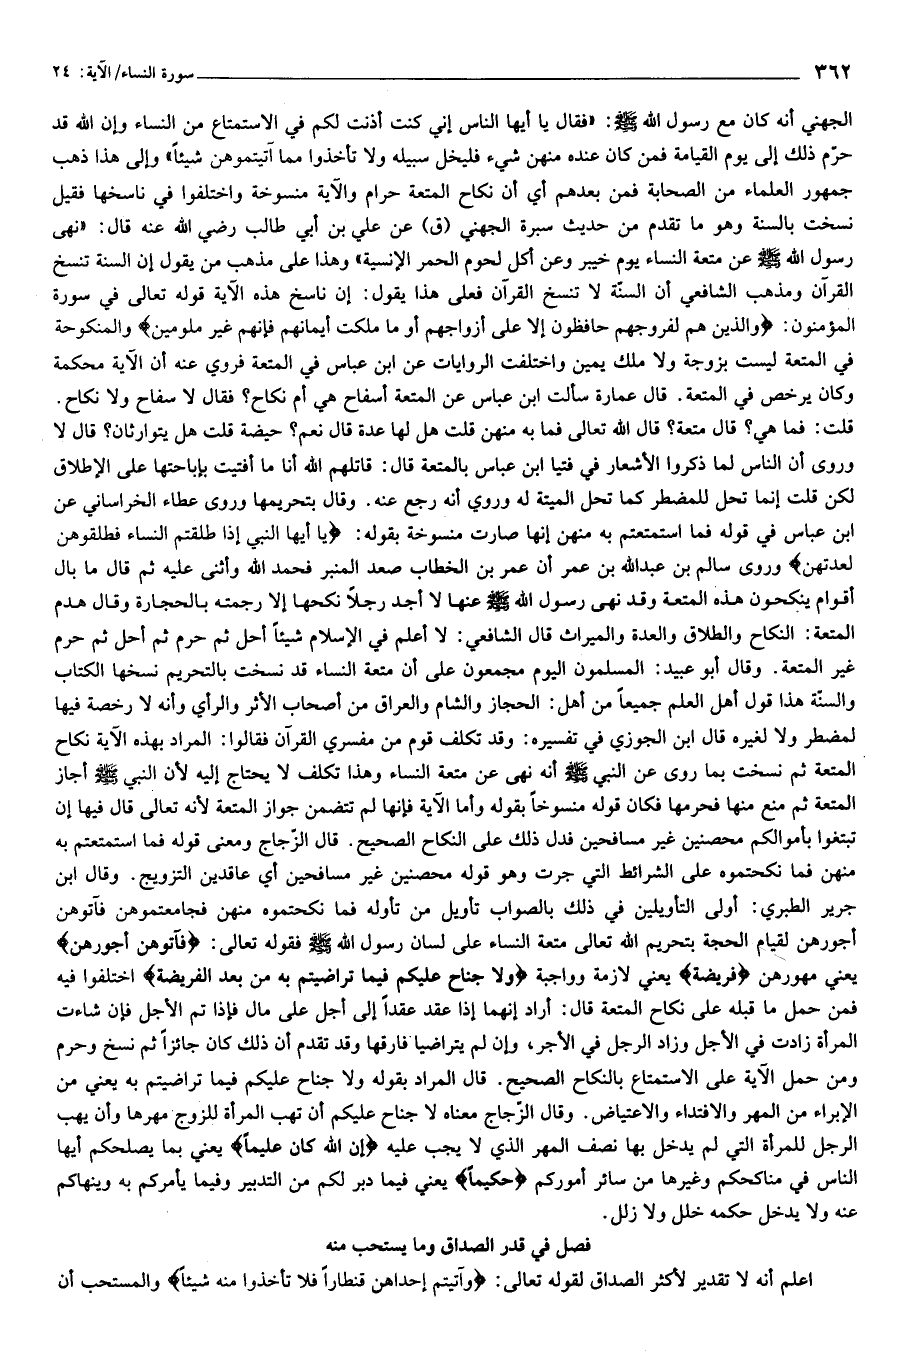 ٣٦٢ سورة النساء/ الآية: ٢٤
الجهني أنه كان مع رسول الله ﷺ: «فقال يا أيها الناس إني كنت أذنت لكم في الاستمتاع من النساء وإن الله قد
حرّم ذلك إلى يوم القيامة فمن كان عنده منهن شيء فليخل سبيله ولا تأخذوا مما آتيتموهن شيئاً» وإلى هذا ذهب
جمهور العلماء من الصحابة فمن بعدهم أي أن نكاح المتعة حرام والآية منسوخة واختلفوا في ناسخها فقيل
نسخت بالسنة وهو ما تقدم من حديث سبرة الجهني (ق) عن علي بن أبي طالب رضي الله عنه قال: «نهى
رسول الله ﷺ عن متعة النساء يوم خيبر وعن أكل لحوم الحمر الإنسية» وهذا على مذهب من يقول إن السنة تنسخ
القرآن ومذهب الشافعي أن السنّة لا تنسخ القرآن فعلى هذا يقول: إن ناسخ هذه الآية قوله تعالى في سورة
المؤمنون: ﴿والذين هم لفروجهم حافظون إلا على أزواجهم أو ما ملكت أيمانهم فإنهم غير ملومين﴾ والمنكوحة
في المتعة ليست بزوجة ولا ملك يمين واختلفت الروايات عن ابن عباس في المتعة فروي عنه أن الآية محكمة
وكان يرخص في المتعة. قال عمارة سألت ابن عباس عن المتعة أسفاح هي أم نكاح؟ فقال لا سفاح ولا نكاح.
قلت: فما هي؟ قال متعة؟ قال الله تعالى فما به منهن قلت هل لها عدة قال نعم؟ حيضة قلت هل يتوارثان؟ قال لا
وروى أن الناس لما ذكروا الأشعار في فتيا ابن عباس بالمتعة قال: قاتلهم الله أنا ما أفتيت بإباحتها على الإطلاق
لكن قلت إنما تحل للمضطر كما تحل الميتة له وروي أنه رجع عنه. وقال بتحريمها وروى عطاء الخراساني عن
ابن عباس في قوله فما استمتعتم به منهن إنها صارت منسوخة بقوله: ﴿يا أيها النبي إذا طلقتم النساء فطلقوهن
لعدتهن﴾ وروى سالم بن عبدالله بن عمر أن عمر بن الخطاب صعد المنبر فحمد الله وأثنى عليه ثم قال ما بال
أقوام ينكحون هذه المتعة وقد نهى رسول الله ﷺ عنها لا أجد رجلاً نكحها إلا رجمته بالحجارة وقال هدم
المتعة: النكاح والطلاق والعدة والميراث قال الشافعي: لا أعلم في الإسلام شيئاً أحل ثم حرم ثم أحل ثم حرم
غير المتعة. وقال أبو عبيد: المسلمون اليوم مجمعون على أن متعة النساء قد نسخت بالتحريم نسخها الكتاب
والسنّة هذا قول أهل العلم جميعاً من أهل: الحجاز والشام والعراق من أصحاب الأثر والرأي وأنه لا رخصة فيها
لمضطر ولا لغيره قال ابن الجوزي في تفسيره: وقد تكلف قوم من مفسري القرآن فقالوا: المراد بهذه الآية نكاح
المتعة ثم نسخت بما روى عن النبي ﷺ أنه نهى عن متعة النساء وهذا تكلف لا يحتاج إليه لأن النبي ﷺ أجاز
المتعة ثم منع منها فحرمها فكان قوله منسوخاً بقوله وأما الآية فإنها لم تتضمن جواز المتعة لأنه تعالى قال فيها إن
تبتغوا بأموالكم محصنين غير مسافحين فدل ذلك على النكاح الصحيح. قال الزّجاج ومعنى قوله فما استمتعتم به
منهن فما نكحتموه على الشرائط التي جرت وهو قوله محصنين غير مسافحين أي عاقدين التزويج. وقال ابن
جرير الطبري: أولى التأويلين في ذلك بالصواب تأويل من تأوله فما نكحتموه منهن فجامعتموهن فآتوهن
أجورهن لقيام الحجة بتحريم الله تعالى متعة النساء على لسان رسول الله ﷺ فقوله تعالى: ﴿فآتوهن أجورهن﴾
يعني مهورهن ﴿فريضة﴾ يعني لازمة وواجبة ﴿ولا جناح عليكم فيما تراضيتم به من بعد الفريضة﴾ اختلفوا فيه
فمن حمل ما قبله على نكاح المتعة قال: أراد إنهما إذا عقد عقداً إلى أجل على مال فإذا تم الأجل فإن شاءت
المرأة زادت في الأجل وزاد الرجل في الأجر، وإن لم يتراضيا فارقها وقد تقدم أن ذلك كان جائزاً ثم نسخ وحرم
ومن حمل الآية على الاستمتاع بالنكاح الصحيح. قال المراد بقوله ولا جناح عليكم فيما تراضيتم به يعني من
الإبراء من المهر والافتداء والاعتياض. وقال الزّجاج معناه لا جناح عليكم أن تهب المرأة للزوج مهرها وأن يهب
الرجل للمرأة التي لم يدخل بها نصف المهر الذي لا يجب عليه ﴿إن الله كان عليماً﴾ يعني بما يصلحكم أيها
الناس في مناكحكم وغيرها من سائر أموركم ﴿حكيماً﴾ يعني فيما دبر لكم من التدبير وفيما يأمركم به وينهاكم
عنه ولا يدخل حكمه خلل ولا زلل.
فصل في قدر الصداق وما يستحب منه
اعلم أنه لا تقدير لأكثر الصداق لقوله تعالى: ﴿وآتيتم إحداهن قنطاراً فلا تأخذوا منه شيئاً﴾ والمستحب أن